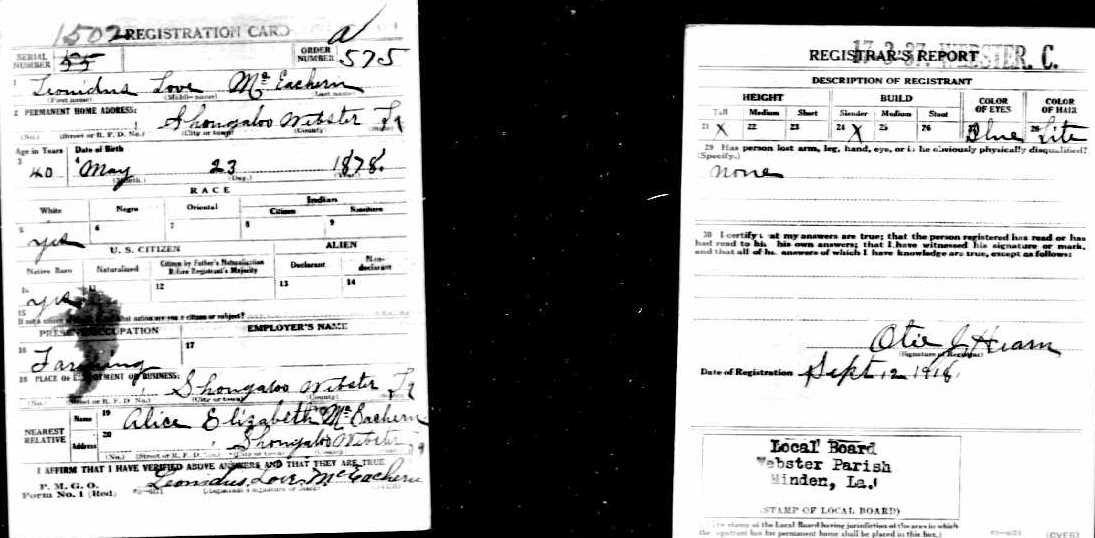 1502 REGISTRATION CARD a
SERIAL NUMBER 55 ORDER NUMBER 575
1 Leonidus Love McEachern
(First name) (Middle name) (Last name)
2 PERMANENT HOME ADDRESS:
Shongaloo Webster La
(No.) (Street or R. F. D. No.) (City or town) (County) (State)
Age in Years Date of Birth
3 40 4 May 23 1878.
(Month.) (Day.) (Year.)
RACE
White Negro Oriental Indian
Citizen Noncitizen
5 yes 6 7 8 9
U. S. CITIZEN ALIEN
Native Born Naturalized Citizen by Father's Naturalization Before Registrant's Majority Declarant Non-declarant
10 yes 12 13 14
15 If not a citizen of what nation are you a citizen or subject?
PRESENT OCCUPATION EMPLOYER'S NAME
16 Farming 17
18 PLACE OF EMPLOYMENT OR BUSINESS:
Shongaloo Webster La
(No.) (Street or R. F. D. No.) (City or town) (County)
NEAREST RELATIVE Name 19 Alice Elizabeth McEachern
Address 20 Shongaloo Webster La
(No.) (Street or R. F. D. No.) (City or town) (County)
I AFFIRM THAT I HAVE VERIFIED ABOVE ANSWERS AND THAT THEY ARE TRUE
P. M. G. O.
Form No. 1 (Red) Leonidus Love McEachern
(Registrant's signature or mark) (OVER)
REGISTRAR'S REPORT
17-3-37. WEBSTER. C.
DESCRIPTION OF REGISTRANT
HEIGHT BUILD COLOR OF EYES COLOR OF HAIR
Tall Medium Short Slender Medium Stout
21 X 22 23 24 X 25 26 27 Blue 28 Lite
29 Has person lost arm, leg, hand, eye, or is he obviously physically disqualified?
(Specify.)
none
30 I certify that my answers are true; that the person registered has read or has
had read to him his own answers; that I have witnessed his signature or mark,
and that all of his answers of which I have knowledge are true, except as follows:
Otie J Hearn
(Signature of Registrar)
Date of Registration Sept 12 1918
Local Board
Webster Parish
Minden, La.
(STAMP OF LOCAL BOARD)
(The stamp of the Local Board having jurisdiction of the area in which
the registrant has his permanent home shall be placed in this box.)
(OVER)